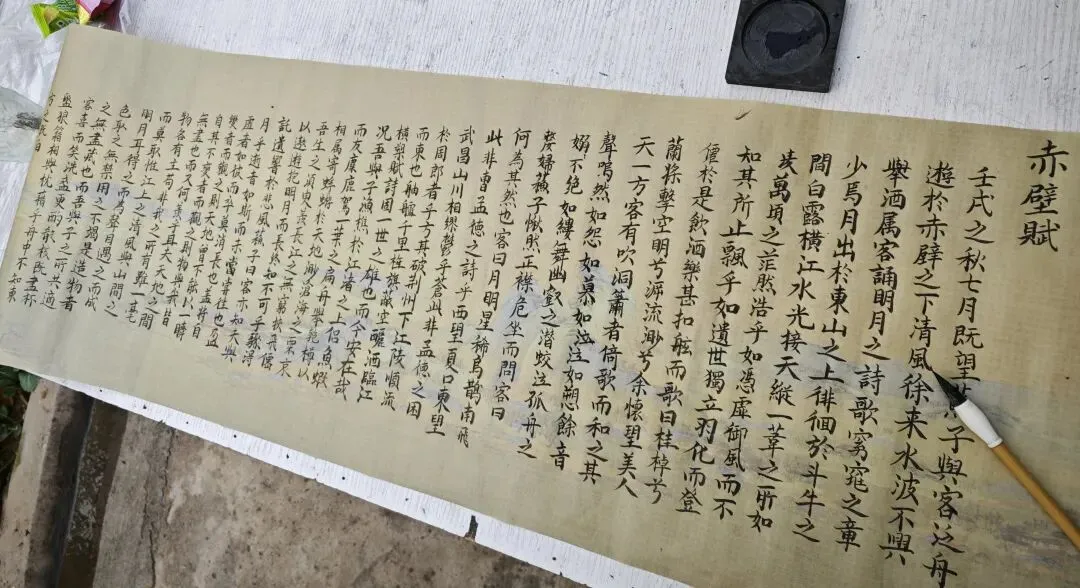 赤壁賦
壬戌之秋七月既望子與客泛舟
遊於赤壁之下清風徐来水波不興
舉洒属客誦明月之詩歌窈窕之章
少焉月出於東山之上徘徊於斗牛之
間白露横江水光接天縱一葦之所如
凌萬頃之茫然浩乎如憑虚御風而不
知其所止飄乎如遺世獨立羽化而登
僊於是飲洒樂甚扣舷而歌曰桂棹兮
蘭槳擊空明兮泝流渺兮余懷望美人
天一方客有吹洞簫者倚歌而和之其
聲嗚然如怨如慕如泣如愬餘音
嫋不绝如縷舞幽壑之潜蛟泣孤舟之
嫠婦蘇子愀然正襟危坐而問客曰
何為其然也客曰月明星稀烏鵲南飛
此非曹孟德之詩乎西望夏口東望
武昌山川相缪鬱乎蒼此非孟德之困
於周郎者乎方其破荆州下江陵順流
而東也舳艫千里旌旗蔽空釃酒臨江
横槊賦詩固一世之雄也而今安在哉
况吾與子漁樵於江渚之上侣魚蝦
而友麋鹿駕一葉之扁舟舉匏樽以
相属寄蜉蝣於天地渺滄海之一粟哀
吾生之須臾羨長江之無窮挾飛僊
以遨遊抱明月而長终知不可乎驟得
託遺響於悲風蘇子曰客亦知夫與
月乎逝者如斯而未嘗往也盈
虚者如彼而卒莫消長也盖将自
變者而觀之則天地曾不能以一瞬
自其不變者而觀之則物與我皆
無盡也而又何羨乎且夫天地之間
物各有主苟非我之所有雖一毫
而莫取惟江上之清風與山間之
明月耳得之而為聲目遇之而成
色取之無禁用之不竭是造物者
之無盡藏也而吾與子之所共適
客喜而笑洗盏更酌肴核既盡杯
盤狼籍相與枕藉乎舟中不知東
方之既白